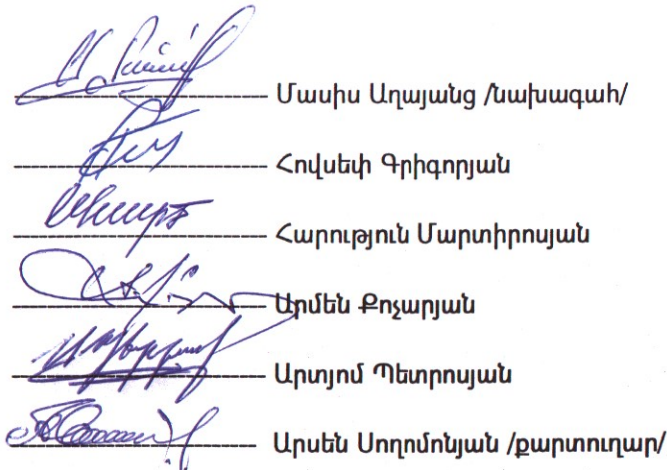 Մասիս Աղայանց /նախագահ/
Հովսեփ Գրիգորյան
Հարություն Մարտիրոսյան
Արմեն Քոչարյան
Արտյոմ Պետրոսյան
Արսեն Սողոմոնյան /քարտուղար/